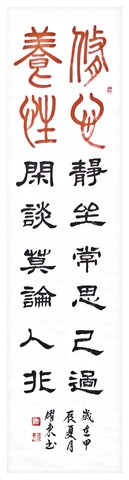 修心
養性
靜坐常思己過
閑談莫論人非
歲在甲
辰夏月
耀東书